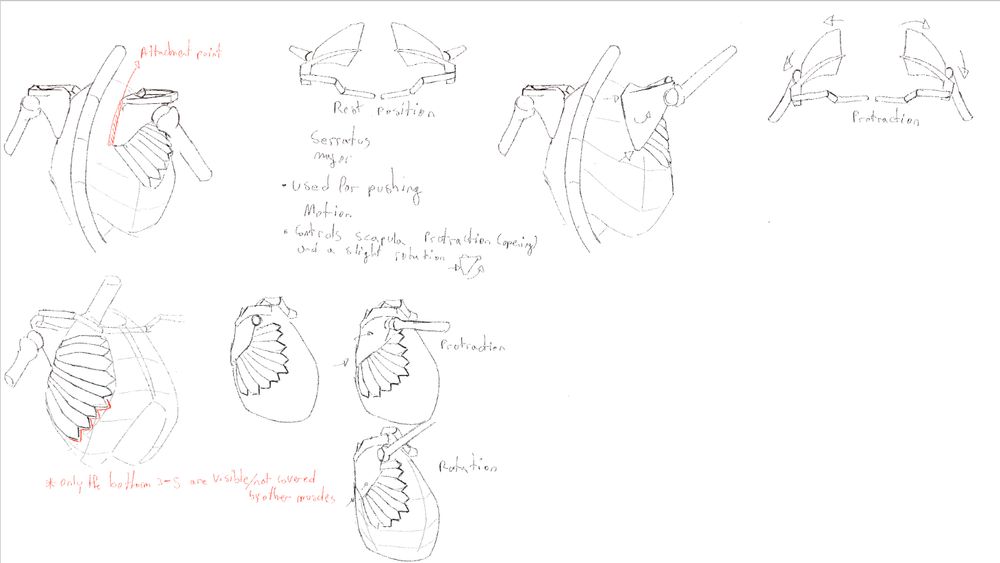 Attachment point
Rest position
Serratus
major
• Used for pushing
Motion
• Controls scapula Protraction (opening)
and a slight rotation
Protraction
Protraction
Rotation
* only the bottom 3-5 are visible/not covered
by other muscles